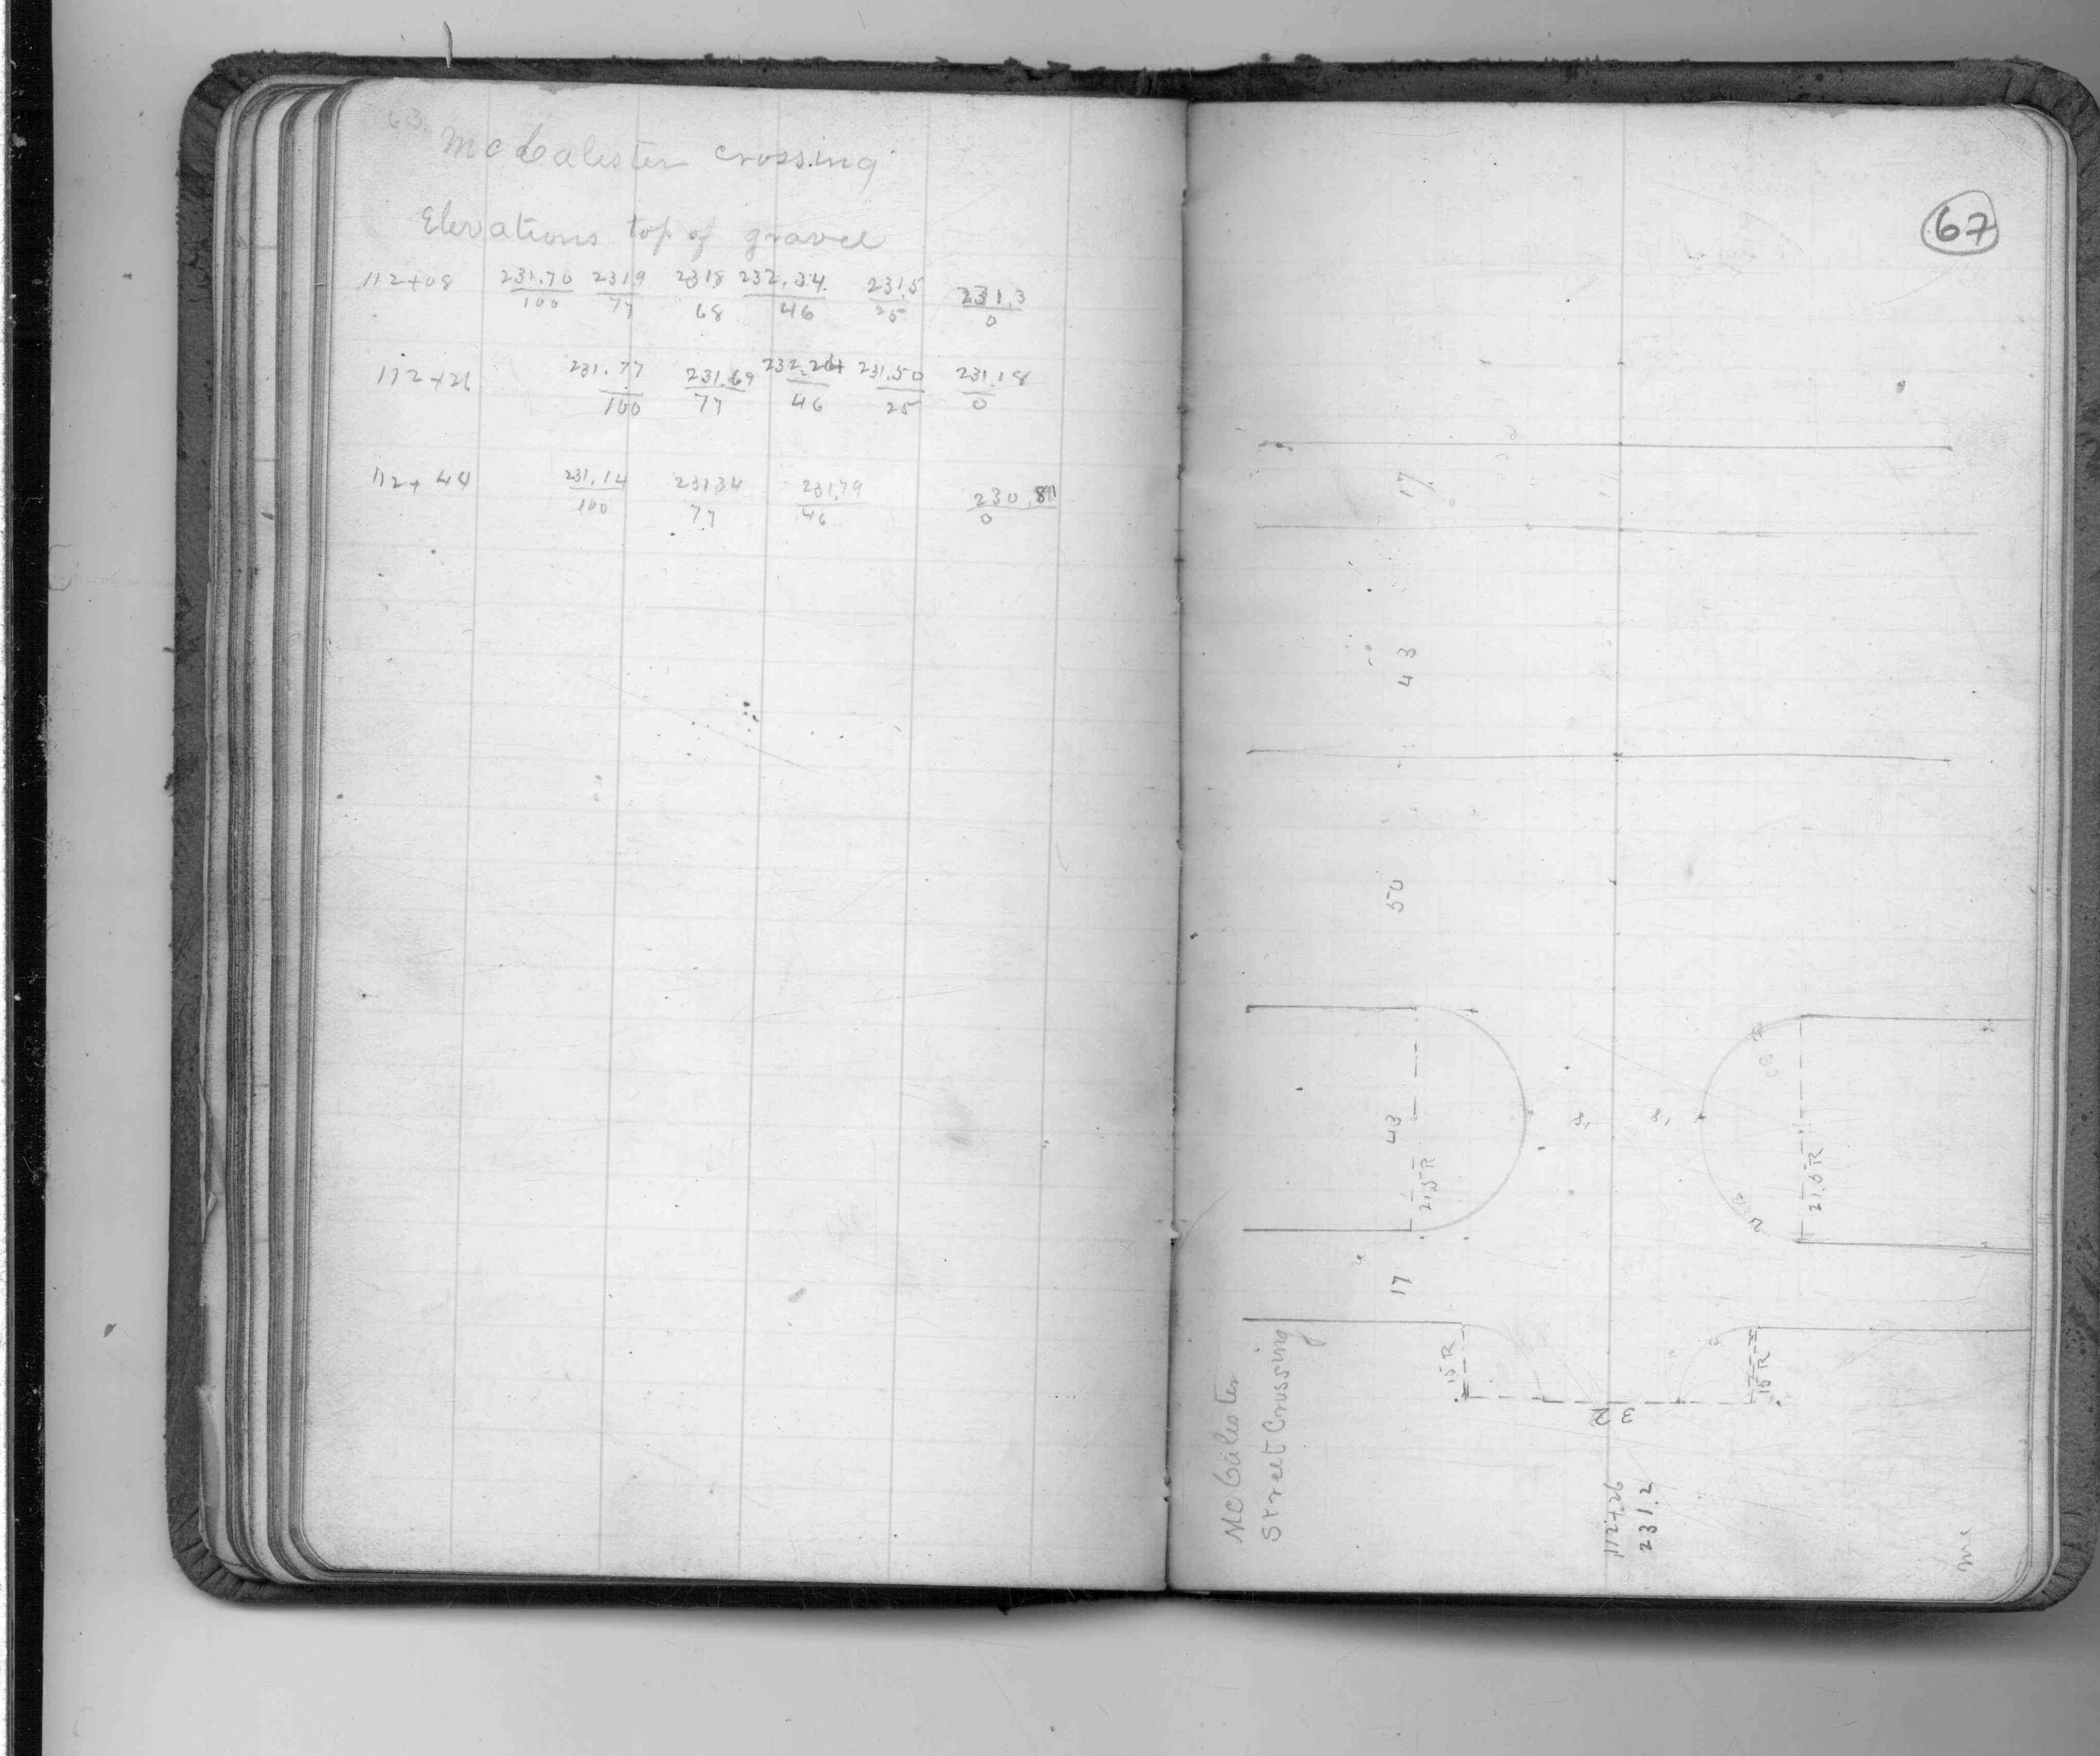 McCalester crossing
Elevations top of gravel
112+08 231.70/100 231.9/77 231.8/68 232.34/46 231.5/25 231.3/0
112+26 231.77/100 231.69/77 232.26/46 231.50/25 231.18/0
112+44 231.14/100 231.34/77 231.79/46 230.81/0
67
17
17
43
50
43
21.5 R
21.5 R
17
15 R
15 R
McCalester
Street Crossing
112+26
231.2